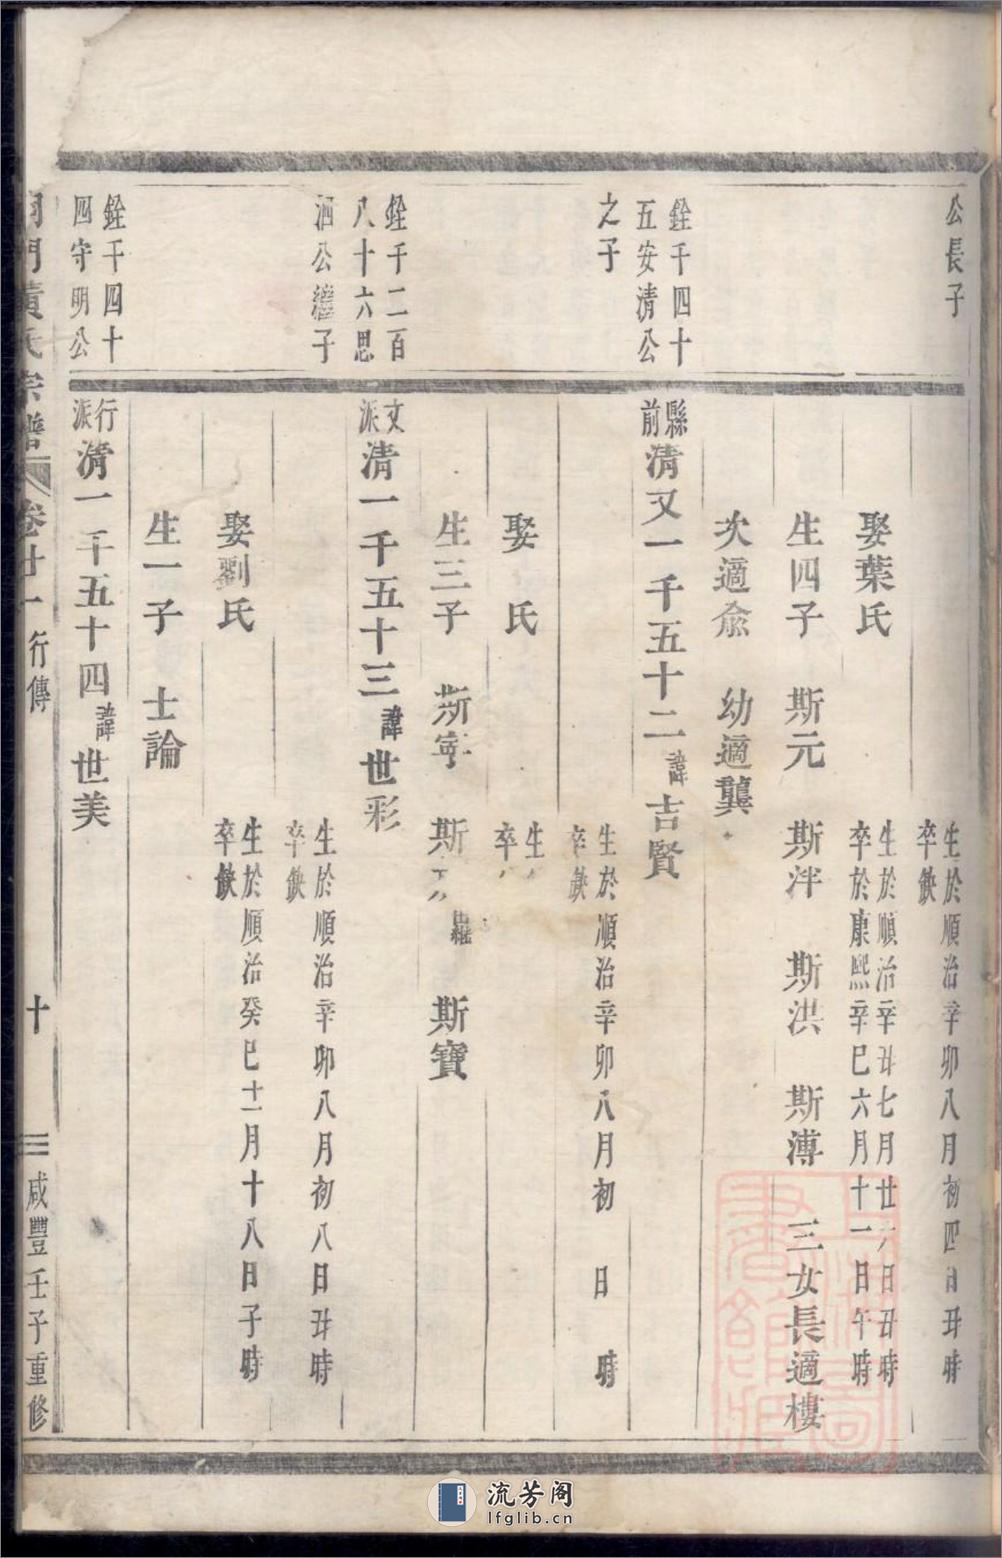 公長子
生於順治辛卯八月初四日丑時
卒缺
娶葉氏
生於順治辛丑七月廿六日丑時
卒於康熙辛巳六月十一日午時
生四子 斯元 斯泮 斯洪 斯溥 三女長適樓
次適俞 幼適龔
銓千四十
五安清公
之子
縣前清又一千五十二諱吉賢
生於順治辛卯八月初 日 時
卒缺
娶 氏
生
卒
生三子 斯寧 斯 斯寶
銓千二百
八十六思
洒公繼子
文派清一千五十三諱世彩
生於順治辛卯八月初八日丑時
卒缺
娶劉氏
生於順治癸巳十二月十八日子時
卒缺
生一子 士論
銓千四十
四守明公
行派清一千五十四諱世美
門黃氏宗譜 卷廿一 行傳 十 咸豐壬子重修
流芳阁
lfglib.cn